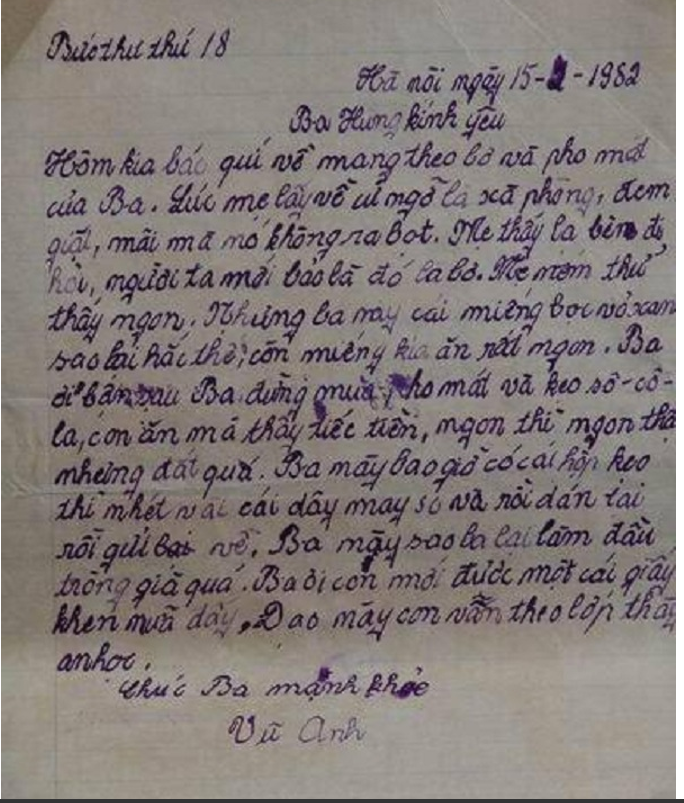 Bức thư thứ 18
Hà nôi ngày 15- -1982
Ba Hưng kính yêu
Hôm kia bác quí về mang theo bơ và pho mát
của Ba. Lúc mẹ lấy về cứ ngỡ là xà phòng, đem
giặt, mãi mà nó không ra bọt. Mẹ thấy lạ bèn đi
hỏi, người ta mới bảo là đó là bơ. Mẹ nếm thử
thấy ngon. Nhưng ba này cái miếng bọc vỏ xan
sao lại hắc thế, còn miếng kia ăn rất ngon. Ba
đi bận sau Ba đừng mua pho mát và kẹo sô-cô-
la, con ăn mà thấy tiếc tiền, ngon thì ngon thậ
nhưng đắt quá. Ba mày bao giờ có cái hộp kẹo
thì nhét vài cái dây may so và rồi dán lại
rồi gửi về. Ba mày sao ba lại làm đầu
trông già quá. Ba ơi con mới được một cái giấy
khen nữa đấy, Dạo này con vẫn theo lớp thầy
anhọc.
Chúc Ba mạnh khỏe
Vũ Anh